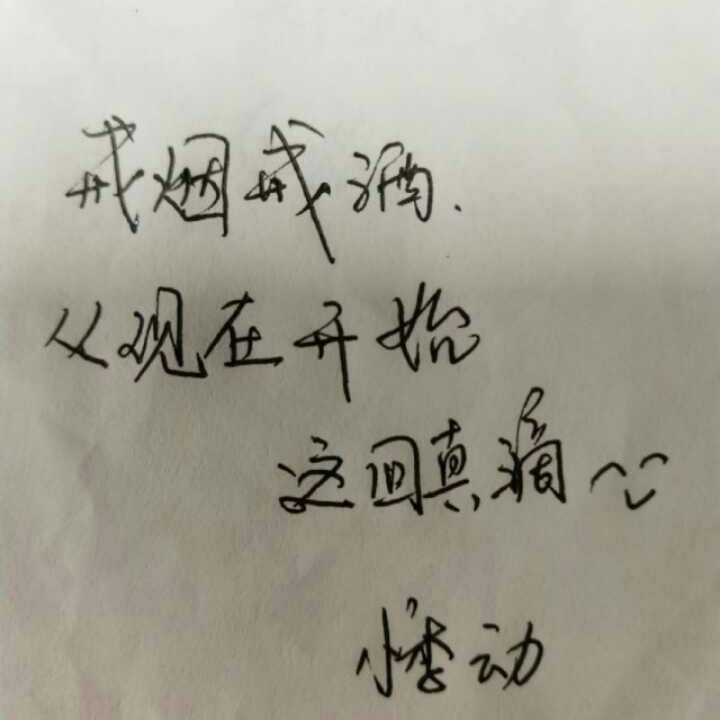 戒烟戒酒.
从现在开始
这回真滴~
悸动